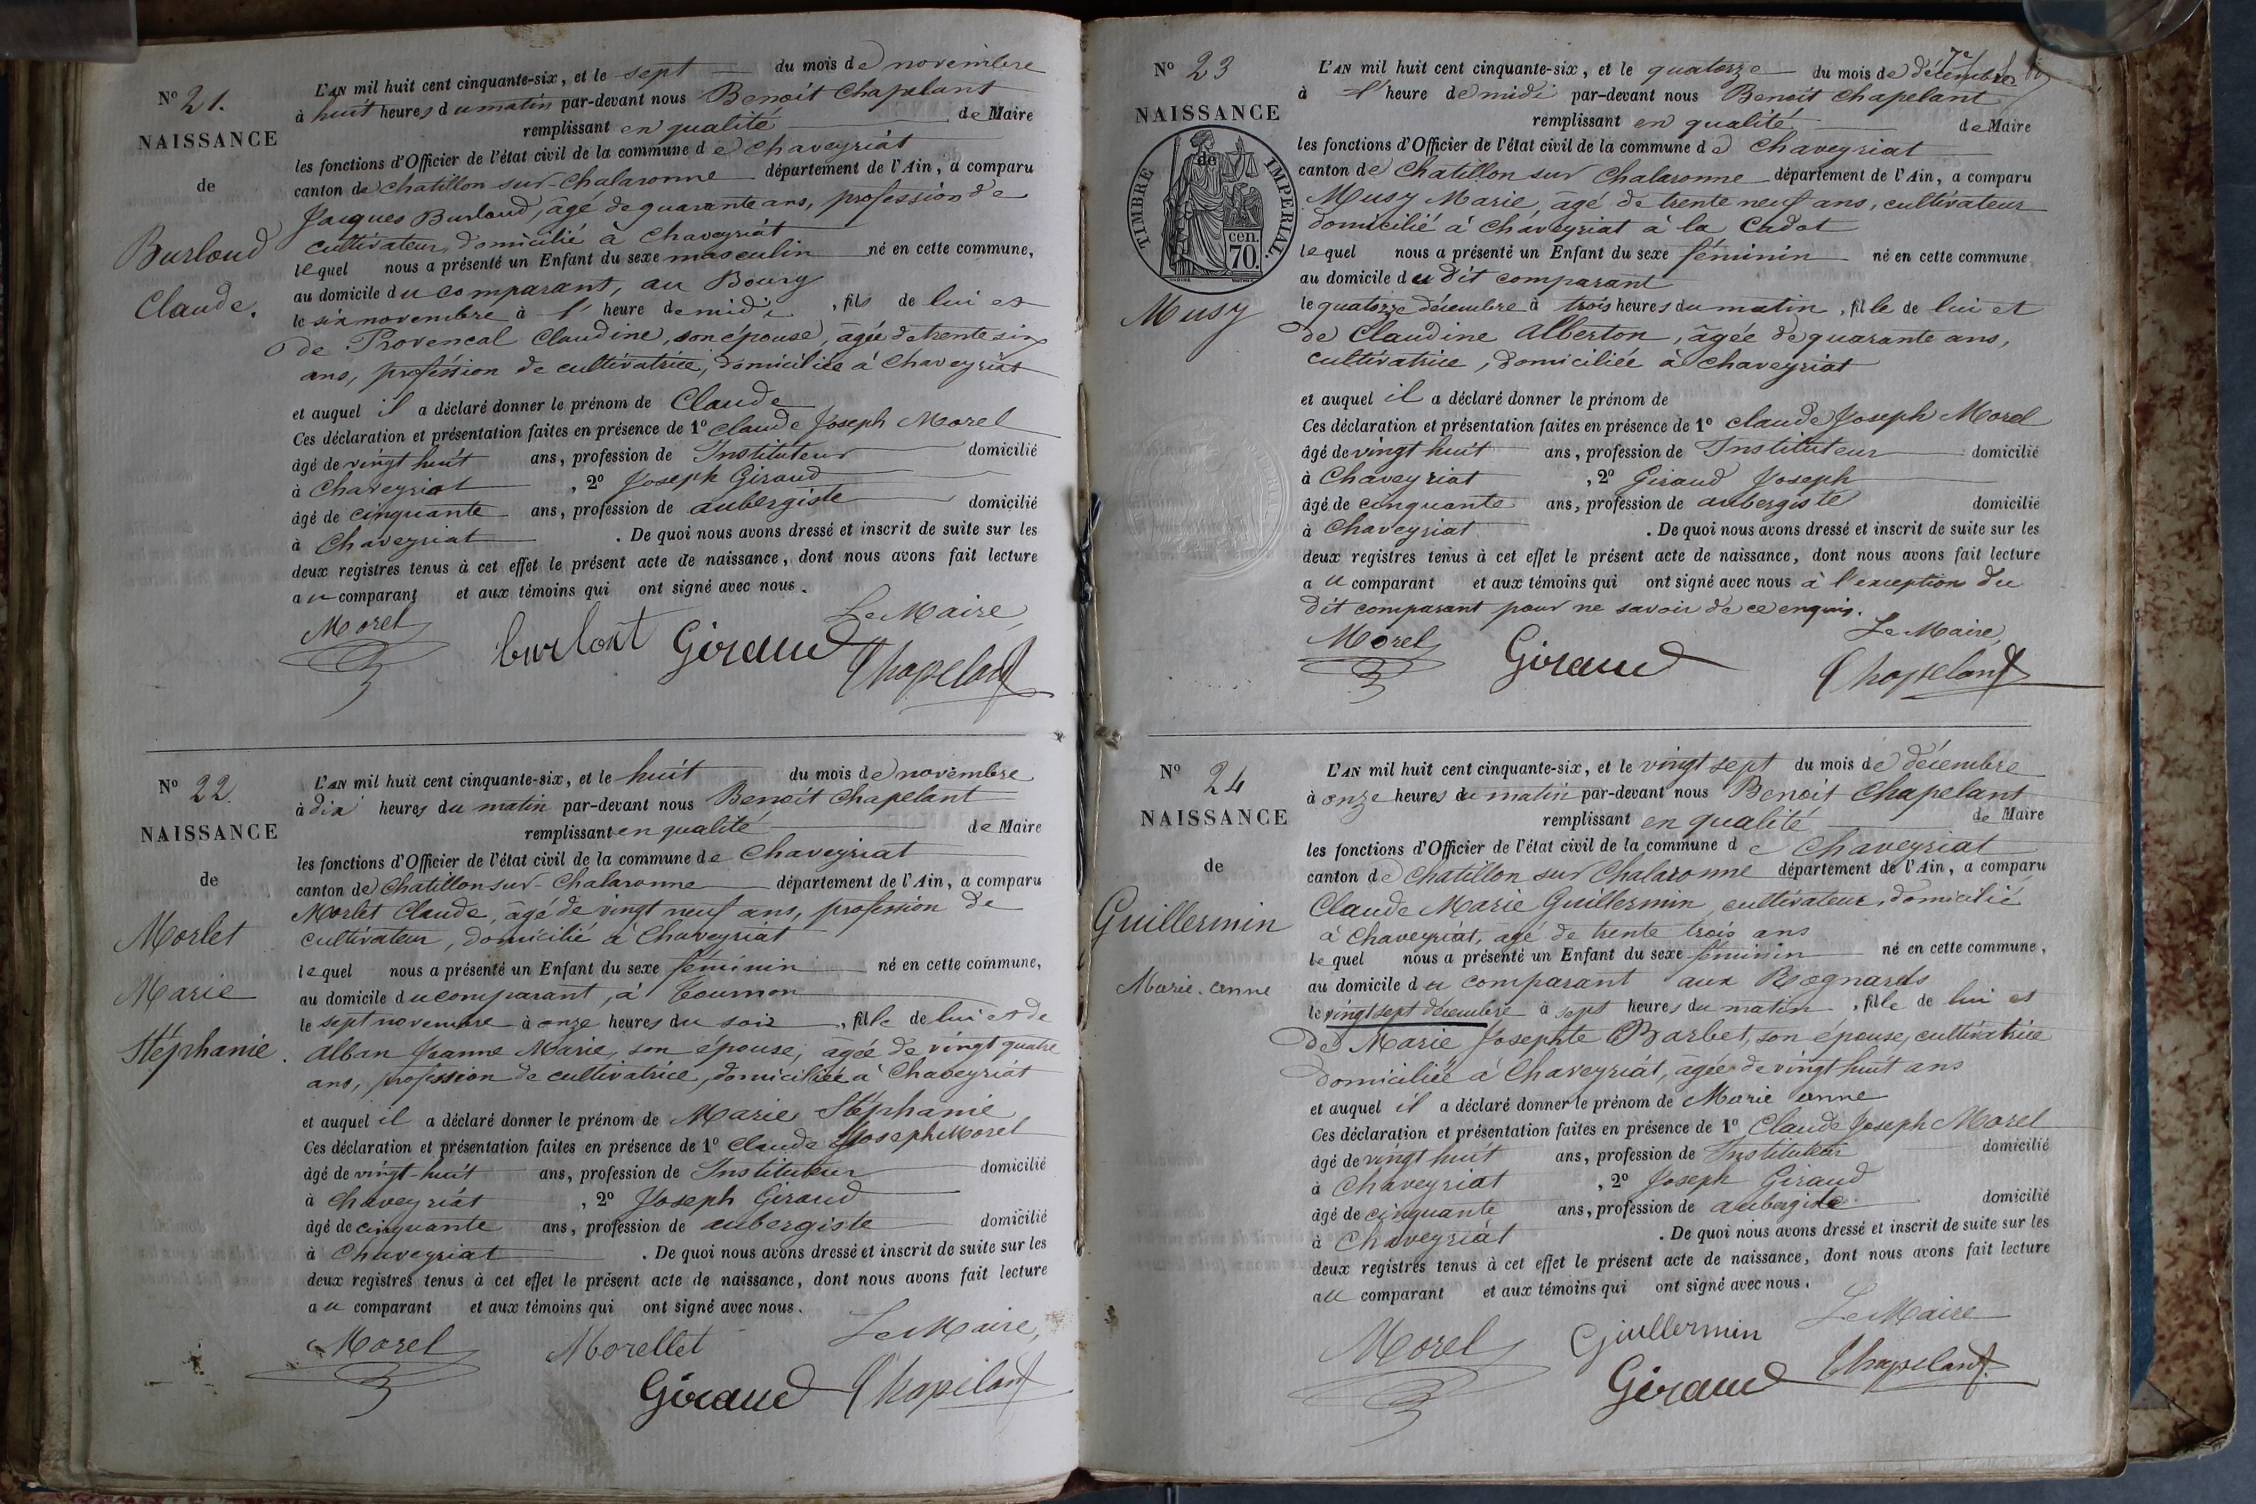 N° 21.
NAISSANCE
de
Burloud
Claude.
L'AN mil huit cent cinquante-six, et le sept du mois de novembre
à huit heures du matin par-devant nous Benoit Chapelant
remplissant en qualité de Maire
les fonctions d'Officier de l'état civil de la commune de Chaveyriat
canton de Chatillon-sur-Chalaronne département de l'Ain, a comparu
Jacques Burloud, âgé de quarante ans, profession de
cultivateur, domicilié à Chaveyriat
lequel nous a présenté un Enfant du sexe masculin né en cette commune,
au domicile du comparant, au Bourg
le six novembre à l' heure de midi, fils de lui et
de Provencal Claudine, son épouse, âgée de trente six
ans, profession de cultivatrice, domiciliée à Chaveyriat
et auquel il a déclaré donner le prénom de Claude
Ces déclaration et présentation faites en présence de 1° Claude Joseph Morel
âgé de vingt huit ans, profession de Instituteur domicilié
à Chaveyriat, 2° Joseph Giraud
âgé de cinquante ans, profession de aubergiste domicilié
à Chaveyriat. De quoi nous avons dressé et inscrit de suite sur les
deux registres tenus à cet effet le présent acte de naissance, dont nous avons fait lecture
au comparant et aux témoins qui ont signé avec nous.
Le Maire,
Morel burlout Giraud Chapelant
N° 22.
NAISSANCE
de
Morlet
Marie
Stéphanie.
L'AN mil huit cent cinquante-six, et le huit du mois de novembre
à dix heures du matin par-devant nous Benoit Chapelant
remplissant en qualité de Maire
les fonctions d'Officier de l'état civil de la commune de Chaveyriat
canton de Chatillon-sur-Chalaronne département de l'Ain, a comparu
Morlet Claude, âgé de vingt neuf ans, profession de
cultivateur, domicilié à Chaveyriat
lequel nous a présenté un Enfant du sexe féminin né en cette commune,
au domicile du comparant, à Tournon
le sept novembre à onze heures du soir, fille de lui et de
Alban Jeanne Marie, son épouse, âgée de vingt quatre
ans, profession de cultivatrice, domiciliée à Chaveyriat
et auquel il a déclaré donner le prénom de Marie Stéphanie
Ces déclaration et présentation faites en présence de 1° Claude Joseph Morel
âgé de vingt-huit ans, profession de Instituteur domicilié
à Chaveyriat, 2° Joseph Giraud
âgé de cinquante ans, profession de aubergiste domicilié
à Chaveyriat. De quoi nous avons dressé et inscrit de suite sur les
deux registres tenus à cet effet le présent acte de naissance, dont nous avons fait lecture
au comparant et aux témoins qui ont signé avec nous.
Le Maire,
Morel Morellet
Giraud Chapelant
7e
N° 23
NAISSANCE
de
TIMBRE IMPERIAL.
cen.
70.
Musy
L'AN mil huit cent cinquante-six, et le quatorze du mois de décembre
à l'heure de midi par-devant nous Benoit Chapelant
remplissant en qualité de Maire
les fonctions d'Officier de l'état civil de la commune de Chaveyriat
canton de Chatillon sur Chalaronne département de l'Ain, a comparu
Musy Marie, âgé de trente neuf ans, cultivateur
domicilié à Chaveyriat à la Cadot
lequel nous a présenté un Enfant du sexe féminin né en cette commune
au domicile du dit comparant
le quatorze décembre à trois heures du matin, fille de lui et
de Claudine Alberton, âgée de quarante ans,
cultivatrice, domiciliée à Chaveyriat
et auquel il a déclaré donner le prénom de
Ces déclaration et présentation faites en présence de 1° Claude Joseph Morel
âgé de vingt huit ans, profession de Instituteur domicilié
à Chaveyriat, 2° Giraud Joseph
âgé de cinquante ans, profession de aubergiste domicilié
à Chaveyriat. De quoi nous avons dressé et inscrit de suite sur les
deux registres tenus à cet effet le présent acte de naissance, dont nous avons fait lecture
au comparant et aux témoins qui ont signé avec nous à l'exception du
dit comparant pour ne savoir de ce enquis.
Le Maire,
Morel Giraud Chapelant
N° 24
NAISSANCE
de
Guillermin
Marie-anne
L'AN mil huit cent cinquante-six, et le vingt sept du mois de décembre
à onze heures du matin par-devant nous Benoit Chapelant
remplissant en qualité de Maire
les fonctions d'Officier de l'état civil de la commune de Chaveyriat
canton de Chatillon sur Chalaronne département de l'Ain, a comparu
Claude Marie Guillermin, cultivateur, domicilié
à Chaveyriat, âgé de trente trois ans
lequel nous a présenté un Enfant du sexe féminin né en cette commune,
au domicile du comparant aux Rognards
le vingt sept décembre à sept heures du matin, fille de lui et
de Marie Josephte Barbet, son épouse, cultivatrice
domiciliée à Chaveyriat, âgée de vingt huit ans
et auquel il a déclaré donner le prénom de Marie anne
Ces déclaration et présentation faites en présence de 1° Claude Joseph Morel
âgé de vingt huit ans, profession de Instituteur domicilié
à Chaveyriat, 2° Joseph Giraud
âgé de cinquante ans, profession de aubergiste domicilié
à Chaveyriat. De quoi nous avons dressé et inscrit de suite sur les
deux registres tenus à cet effet le présent acte de naissance, dont nous avons fait lecture
au comparant et aux témoins qui ont signé avec nous.
Le Maire
Morel Guillermin
Giraud Chapelant